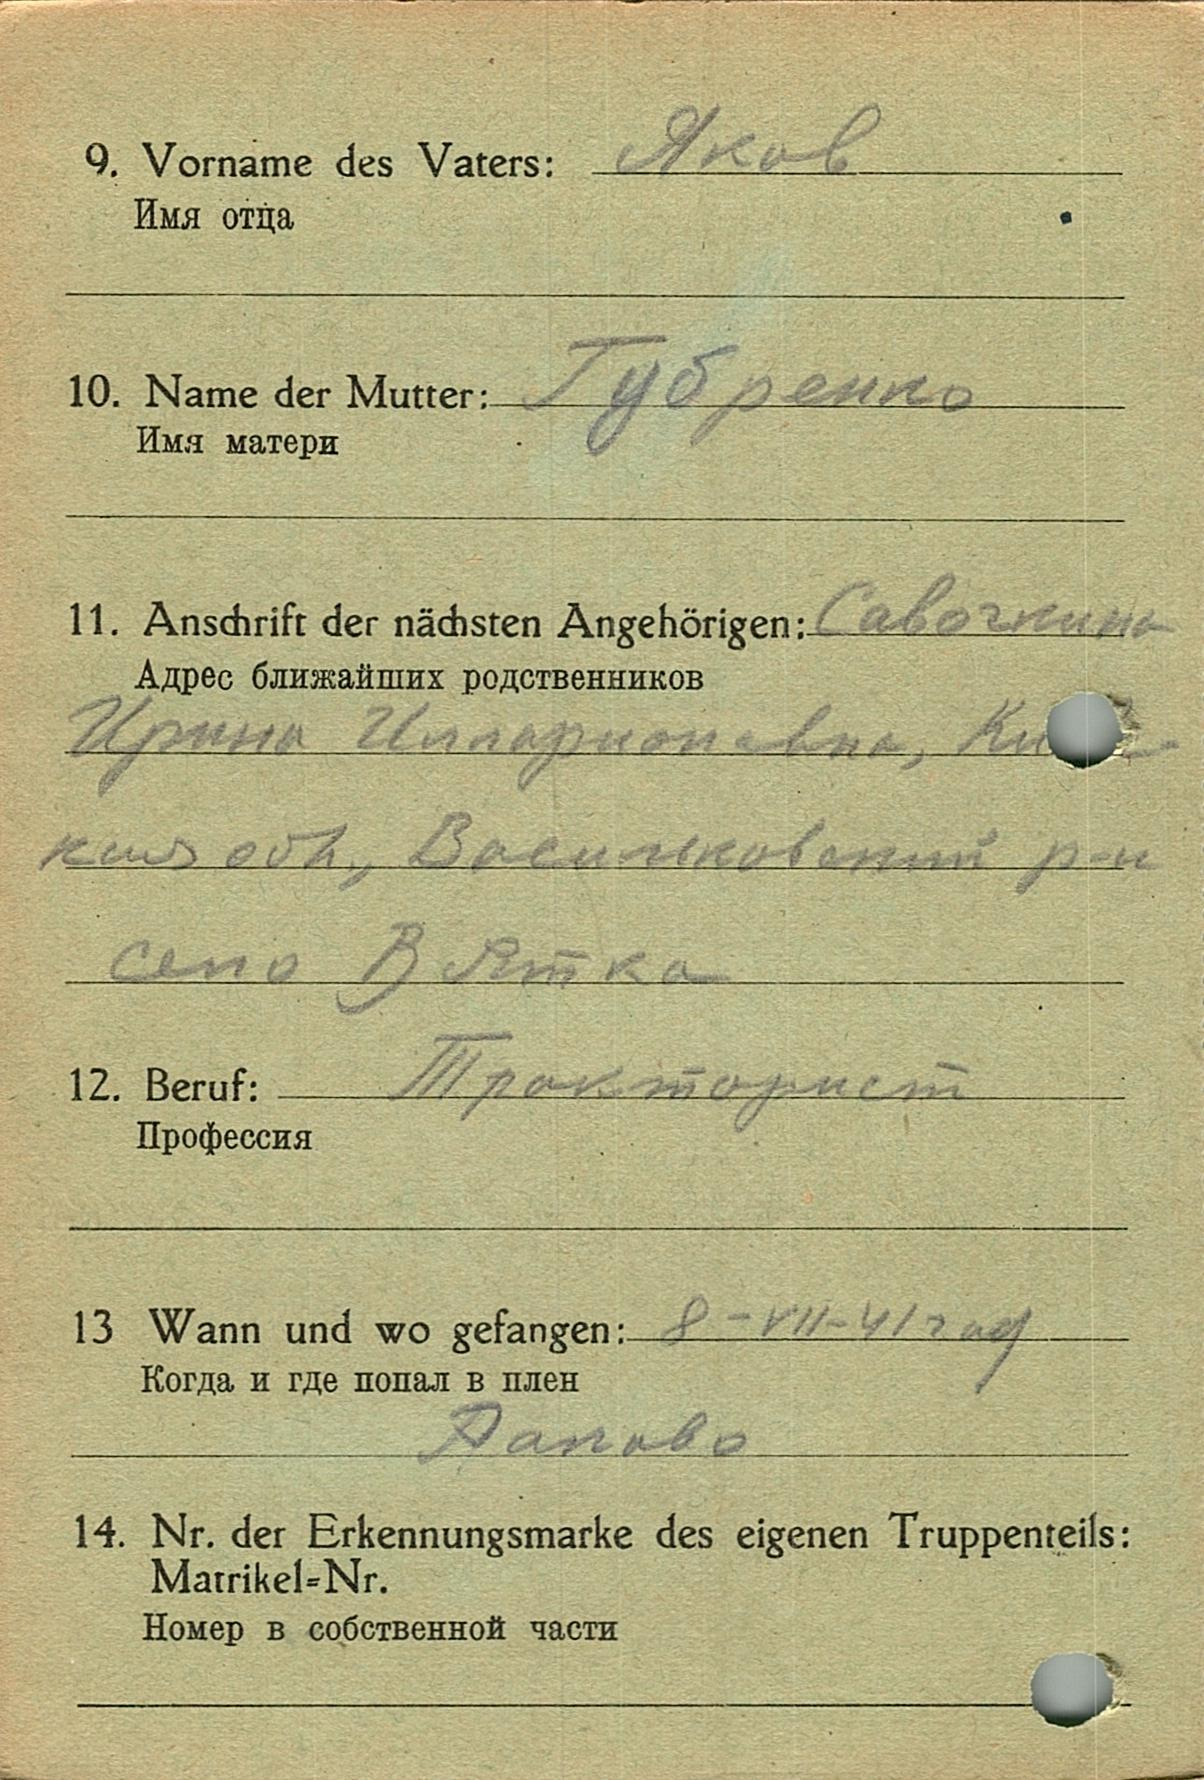 9. Vorname des Vaters: Яков
Имя отца
10. Name der Mutter: Губренко
Имя матери
11. Anschrift der nächsten Angehörigen: Савочкина
Адрес ближайших родственников
Ирина Илларионовна,
обл., Васильковский р-н
село Вятка
12. Beruf: Тракторист
Профессия
13 Wann und wo gefangen: 8-VII-41 год
Когда и где попал в плен
14. Nr. der Erkennungsmarke des eigenen Truppenteils:
Matrikel=Nr.
Номер в собственной части